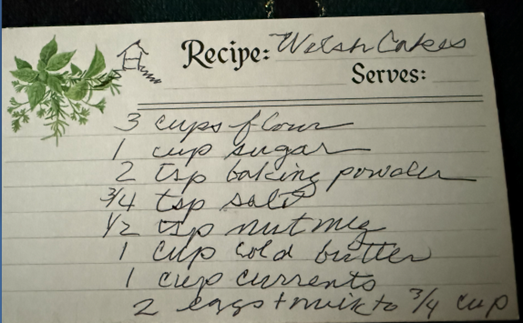 Recipe: Welsh Cakes
Serves:
3 cups flour
1 cup sugar
2 tsp baking powder
3/4 tsp salt
1/2 tsp nutmeg
1 cup cold butter
1 cup currents
2 eggs + milk to 3/4 cup